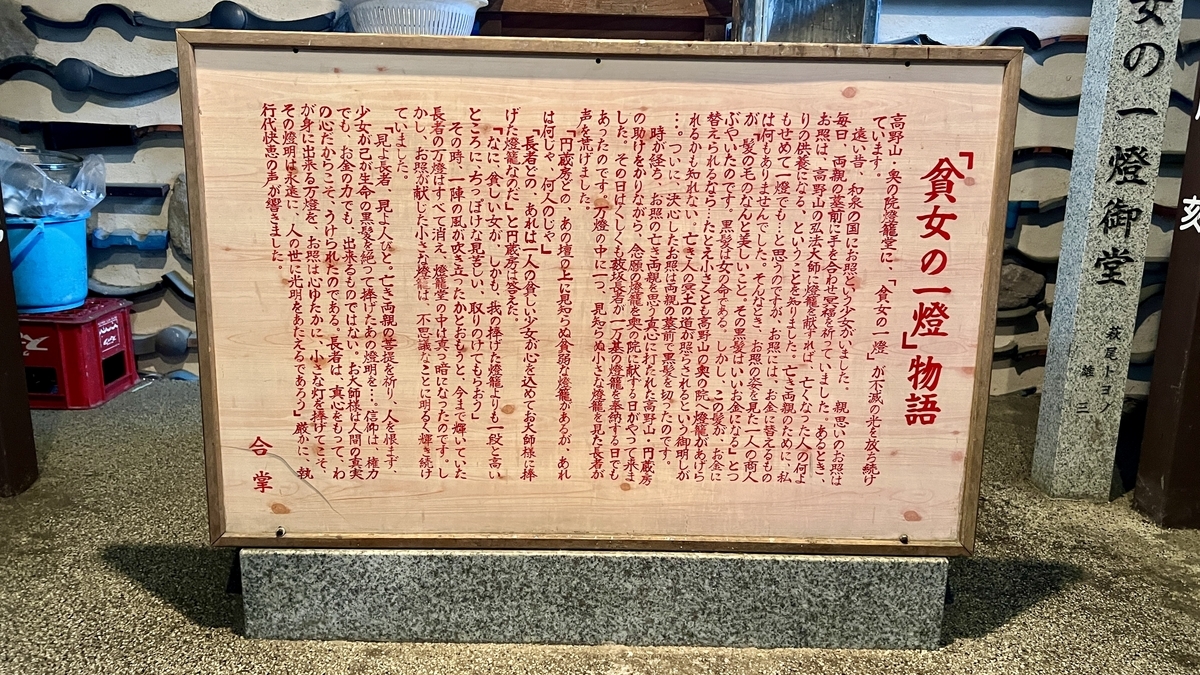 「貧女の一燈」物語
高野山・奥の院燈籠堂に、「貧女の一燈」が不滅の光を放ち続け
ています。
遠い昔、和泉の国にお照という少女がいました。親思いのお照は
毎日、両親の墓前に手を合わせ冥福を祈っていました。あるとき、
お照は、高野山の弘法大師に燈籠を献ずれば、亡くなった人の何よ
りの供養になる、ということを知りました。亡き両親のために、私
もせめて一燈でも…と思うのですが、お照には、お金に替えるもの
は何もありませんでした。そんなとき、お照の姿を見た一人の商人
が「髪の毛のなんと美しいこと。その黒髪はいいお金になる」とつ
ぶやいたのです。黒髪は女の命である。しかし、この髪が、お金に
替えられるなら…たとえ小さくとも高野山の奥の院へ燈籠があげら
れるかも知れない、亡き人の冥土の道が照らされるという御明しが
…。ついに、決心したお照は両親の墓前で黒髪を切ったのです。
時が経ろ、お照の亡き両親を思う真心に打たれた高野山・円蔵房
の助けをかりながら、念願の燈籠を奥の院に献する日がやって来ま
した。その日はくしくも薮坂長者が一万基の燈籠を奉納する日でも
あったのです。万燈の中に一つ、見知らぬ小さな燈籠を見た長者が
声を荒げました。
「円蔵房どの、あの壇の上に見知らぬ貧弱な燈籠があるが、あれ
は何じゃ、何人のじゃ」
「長者どの、あれは一人の貧しい少女が心を込めてお大師様に捧
げた燈籠なのだ」と円蔵房は答えた。
「なに、貧しい女が、しかも、我の捧げた燈籠よりも一段と高い
ところに、ちっぽけな見苦しい、取りのけてもらおう」
その時、一陣の風が吹き立ったかとおもうと、今まで輝いていた
長者の万燈はすべて消え、燈籠堂の中は真っ暗になったのです。し
かし、お照が献じた小さな燈籠は、不思議なことに明るく輝き続け
ていました。
「見よ長者、見よ人びと。亡き両親の菩提を祈り、人を恨まず、
少女が己が生命の黒髪を絶って捧げたあの燈明を…。信仰は、権力
でも、お金の力でも、出来るものではない。お大師様は人間の真実
の心だからこそ、うけられたのである。長者は、真心をもって、わ
が身に出来る万燈を、お照は心ゆたかに、小さな灯を捧げてこそ、
その燈明は永遠に、人の世に光明をあたえるであろう」厳かに、執
行代快忍の声が響きました。
合掌
女の一燈御堂
萩尾トヨノ
雄三